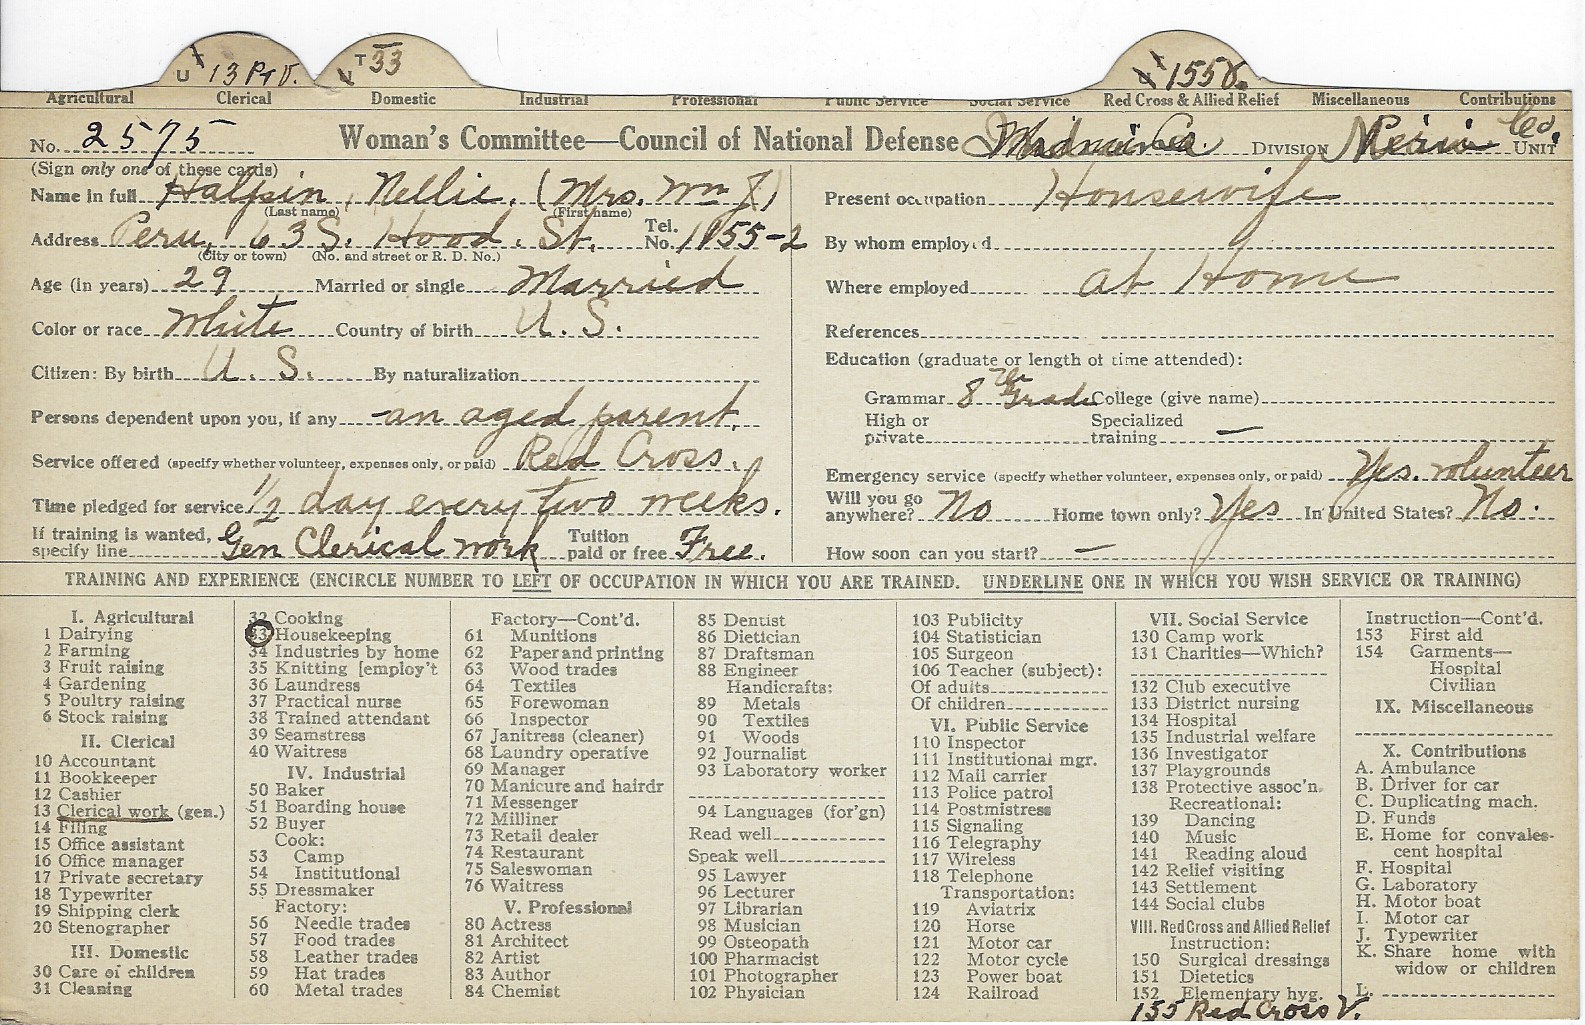 U T 13 Pt V.
V T 33
V 155 V.
Agricultural Clerical Domestic Industrial Professional Public Service Social Service Red Cross & Allied Relief Miscellaneous Contributions
No. 2575 Woman's Committee—Council of National Defense DIVISION Co. UNIT
(Sign only one of these cards)
Name in full Halpin, Nellie. (Mrs. Wm J)
(Last name) (First name)
Address Peru, 63 S. Hood. St. Tel. No. 1155-2
(City or town) (No. and street or R. D. No.)
Age (in years) 29 Married or single Married
Color or race White Country of birth U. S.
Citizen: By birth U. S. By naturalization
Persons dependent upon you, if any an aged parent.
Service offered (specify whether volunteer, expenses only, or paid) Red Cross.
Time pledged for service 1/2 day every two weeks.
If training is wanted, specify line Gen Clerical work Tuition paid or free Free.
Present occupation Housewife
By whom employed
Where employed at Home
References
Education (graduate or length of time attended):
Grammar 8th Grade College (give name)
High or private Specialized training —
Emergency service (specify whether volunteer, expenses only, or paid) Yes. volunteer
Will you go anywhere? No Home town only? Yes In United States? No.
How soon can you start? —
TRAINING AND EXPERIENCE (ENCIRCLE NUMBER TO LEFT OF OCCUPATION IN WHICH YOU ARE TRAINED. UNDERLINE ONE IN WHICH YOU WISH SERVICE OR TRAINING)
I. Agricultural
1 Dairying
2 Farming
3 Fruit raising
4 Gardening
5 Poultry raising
6 Stock raising
II. Clerical
10 Accountant
11 Bookkeeper
12 Cashier
13 Clerical work (gen.)
14 Filing
15 Office assistant
16 Office manager
17 Private secretary
18 Typewriter
19 Shipping clerk
20 Stenographer
III. Domestic
30 Care of children
31 Cleaning
32 Cooking
33 Housekeeping
34 Industries by home
35 Knitting [employ't
36 Laundress
37 Practical nurse
38 Trained attendant
39 Seamstress
40 Waitress
IV. Industrial
50 Baker
51 Boarding house
52 Buyer
Cook:
53 Camp
54 Institutional
55 Dressmaker
Factory:
56 Needle trades
57 Food trades
58 Leather trades
59 Hat trades
60 Metal trades
Factory—Cont'd.
61 Munitions
62 Paper and printing
63 Wood trades
64 Textiles
65 Forewoman
66 Inspector
67 Janitress (cleaner)
68 Laundry operative
69 Manager
70 Manicure and hairdr
71 Messenger
72 Milliner
73 Retail dealer
74 Restaurant
75 Saleswoman
76 Waitress
V. Professional
80 Actress
81 Architect
82 Artist
83 Author
84 Chemist
85 Dentist
86 Dietician
87 Draftsman
88 Engineer
Handicrafts:
89 Metals
90 Textiles
91 Woods
92 Journalist
93 Laboratory worker
94 Languages (for'gn)
Read well
Speak well
95 Lawyer
96 Lecturer
97 Librarian
98 Musician
99 Osteopath
100 Pharmacist
101 Photographer
102 Physician
103 Publicity
104 Statistician
105 Surgeon
106 Teacher (subject):
Of adults
Of children
VI. Public Service
110 Inspector
111 Institutional mgr.
112 Mail carrier
113 Police patrol
114 Postmistress
115 Signaling
116 Telegraphy
117 Wireless
118 Telephone
Transportation:
119 Aviatrix
120 Horse
121 Motor car
122 Motor cycle
123 Power boat
124 Railroad
VII. Social Service
130 Camp work
131 Charities—Which?
132 Club executive
133 District nursing
134 Hospital
135 Industrial welfare
136 Investigator
137 Playgrounds
138 Protective assoc'n.
Recreational:
139 Dancing
140 Music
141 Reading aloud
142 Relief visiting
143 Settlement
144 Social clubs
VIII. Red Cross and Allied Relief
Instruction:
150 Surgical dressings
151 Dietetics
152 Elementary hyg.
155 Red Cross V.
Instruction—Cont'd.
153 First aid
154 Garments—
Hospital
Civilian
IX. Miscellaneous
X. Contributions
A. Ambulance
B. Driver for car
C. Duplicating mach.
D. Funds
E. Home for convales-
cent hospital
F. Hospital
G. Laboratory
H. Motor boat
I. Motor car
J. Typewriter
K. Share home with
widow or children
L.